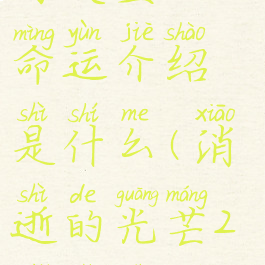 mìng yùn jiè shào
命运介绍
shì shí me xiāo
是什么(消
shì de guāng máng
逝的光芒2